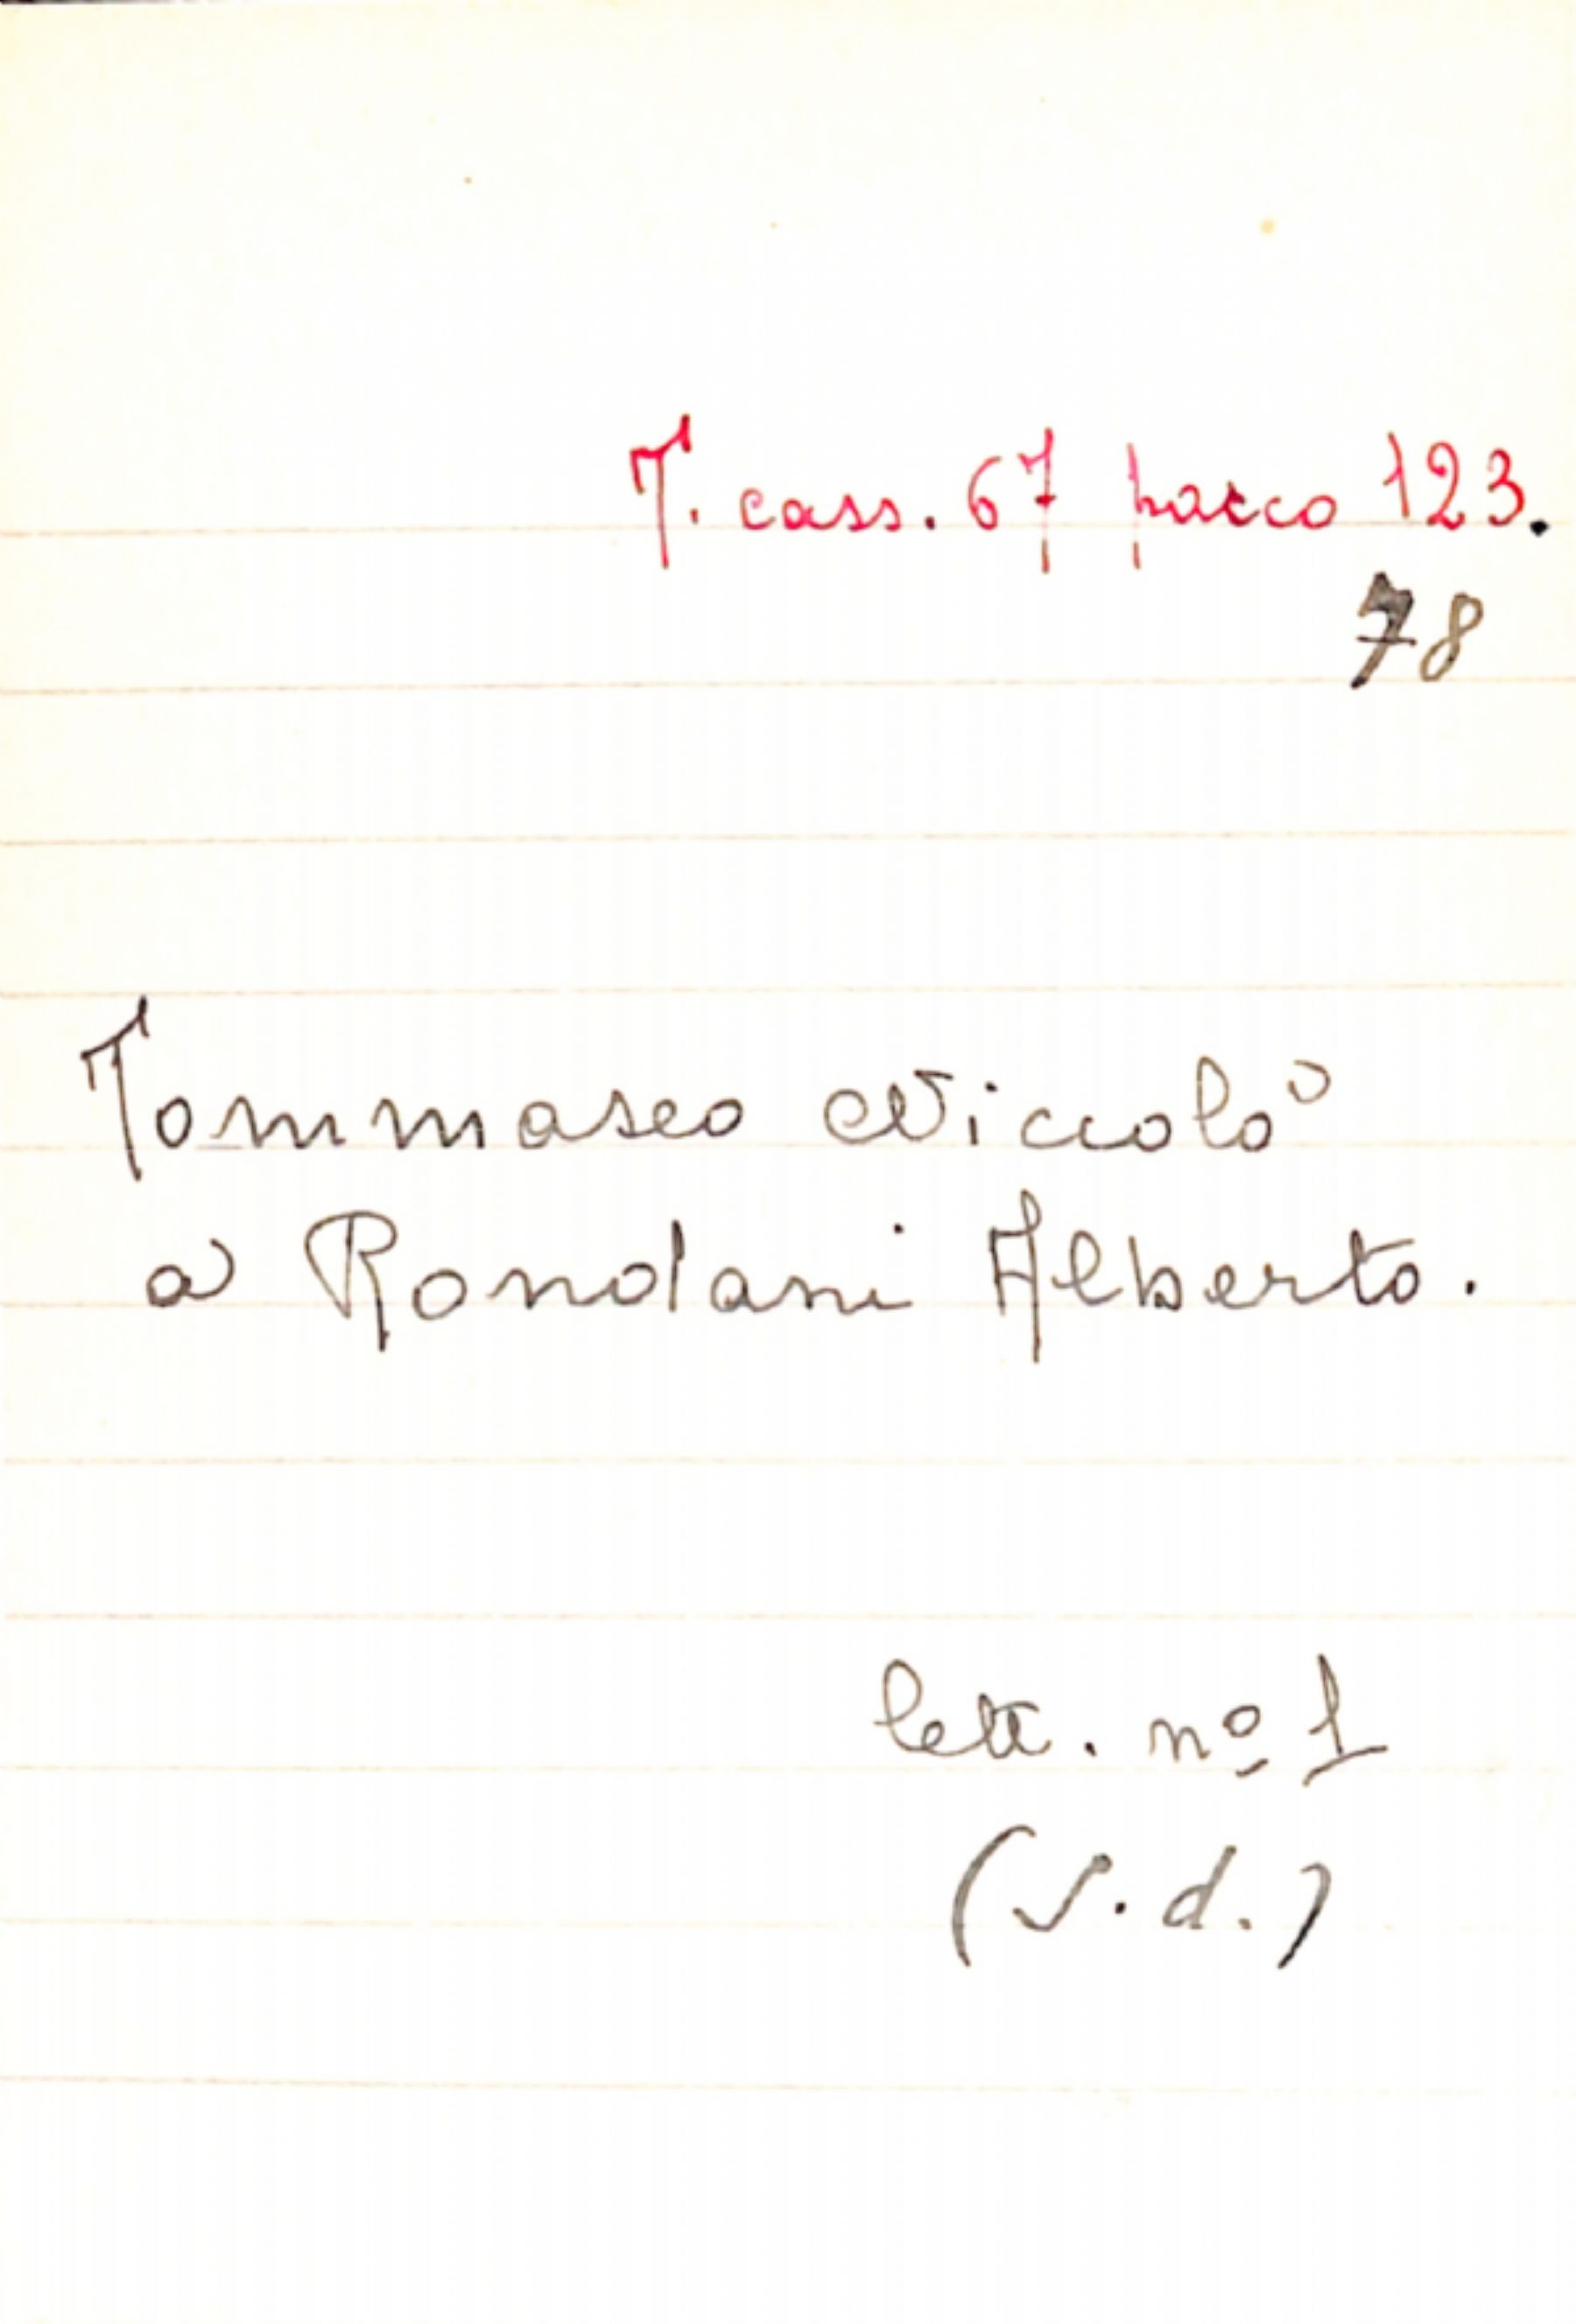 T. cass. 67 pacco 123.
78
Tommaseo Niccolò
a Rondani Alberto.
lett. nº 1
(s. d.)